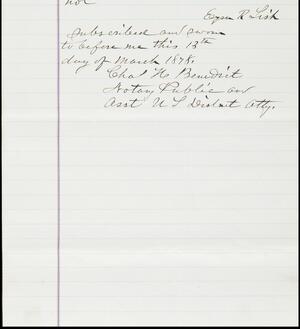 not
R Lish
subscribed and sworn
to before me this 13th
day of March 1878.
Chas H Benedict
Notary Public and
Asst U S District Atty.